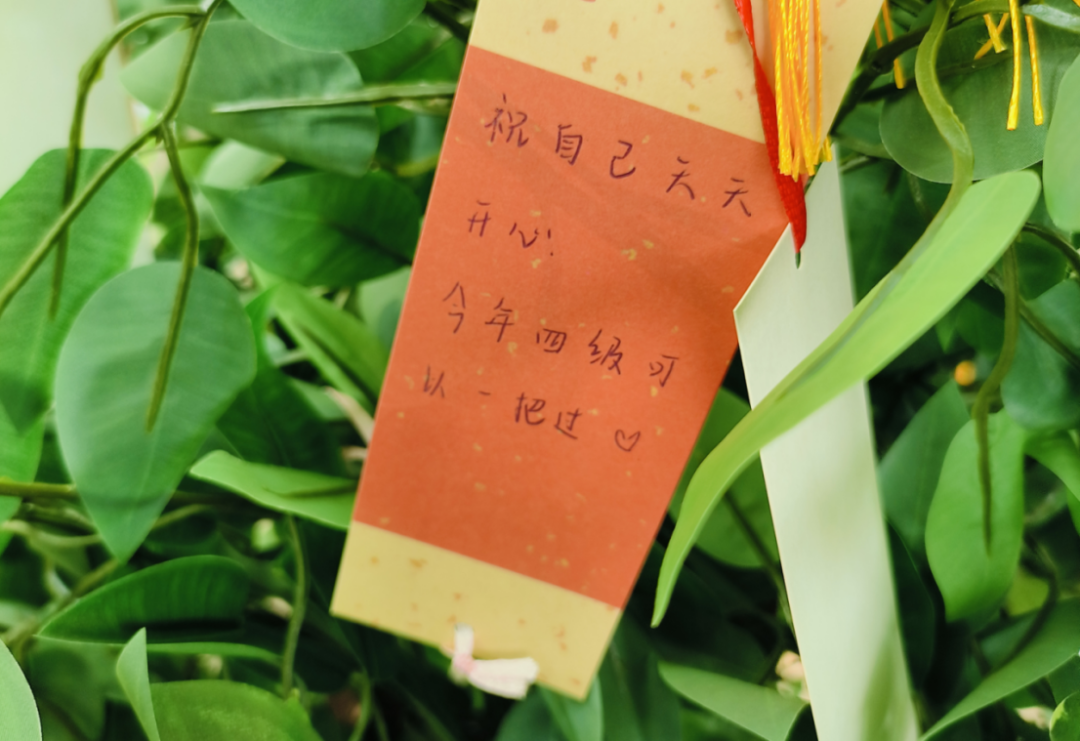 祝自己天天
开心!
今年四级可
以一把过♡